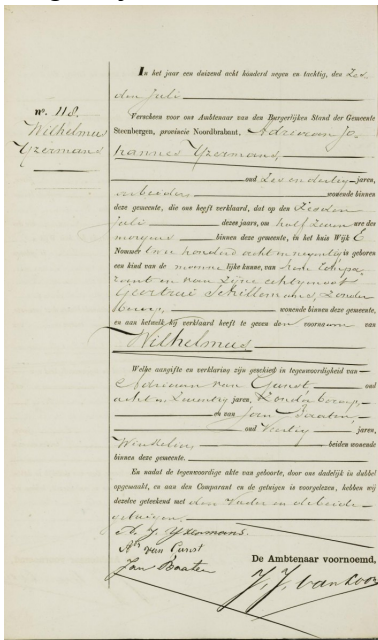 nº. 118.
Wilhelmus
Yzermans
In het jaar een duizend acht honderd negen en tachtig, den Zes
den Juli
Verscheen voor ons Ambtenaar van den Burgerlijken Stand der Gemeente
Steenbergen, provincie Noordbrabant, Adriaan Jo-
hannes Yzermans,
oud Zes en dertig jaren,
arbeider, wonende binnen
deze gemeente, die ons heeft verklaard, dat op den Zesden
Juli dezes jaars, om half zeven ure des
morgens binnen deze gemeente, in het huis Wijk E
Nommer twee honderd acht en negentig is geboren
een kind van de mannelijke kunne, van hem Compa-
rant en van zijne echtgenoot
Geertrui Schillemans, zonder
beroep, wonende binnen deze gemeente,
en aan hetwelk hij verklaard heeft te geven den voornaam van
Wilhelmus
Welke aangifte en verklaring zijn geschied in tegenwoordigheid van
Adriaan van Gunst oud
acht en zeventig jaren, zonder beroep,
en van Jan Baaten,
oud Veertig jaren,
Winkelier, beiden wonende
binnen deze gemeente.
En nadat de tegenwoordige akte van geboorte, door ons dadelijk in dubbel
opgemaakt, en aan den Comparant en de getuigen is voorgelezen, hebben wij
dezelve geteekend met den Vader en de beide
getuigen.
A. J. Yzermans.
Ad van Gunst
De Ambtenaar voornoemd,
Jan Baaten
J. J. van Loon